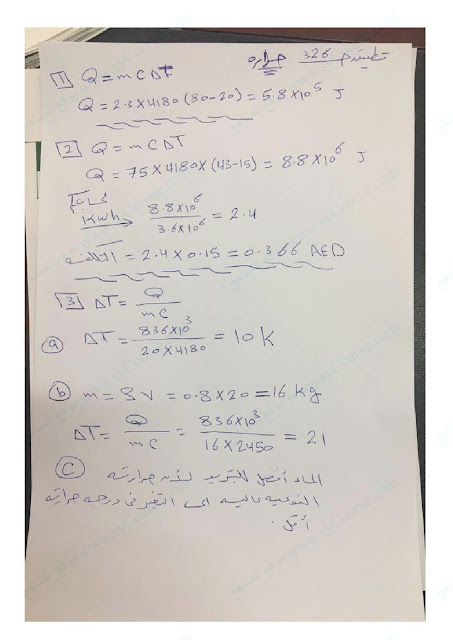 326 حراره
1 Q = m C ΔT
Q = 2.3 x 4180 (80-20) = 5.8 x 10⁵ J
2 Q = m C ΔT
Q = 75 x 4180 x (43-15) = 8.8 x 10⁶ J
1kwh → 8.8 x 10⁶ / 3.6 x 10⁶ = 2.4
التكلفه = 2.4 x 0.15 = 0.366 AED
3 ΔT = Q / mC
a ΔT = 836 x 10³ / 20 x 4180 = 10 K
b m = ρ V = 0.8 x 20 = 16 kg
ΔT = Q / mC = 836 x 10³ / 16 x 2450 = 21
C الماء أفضل للتبريد لأن حرارته
النوعيه عاليه اى التغير فى درجه حرارته
أقل.
www.syCourse.com